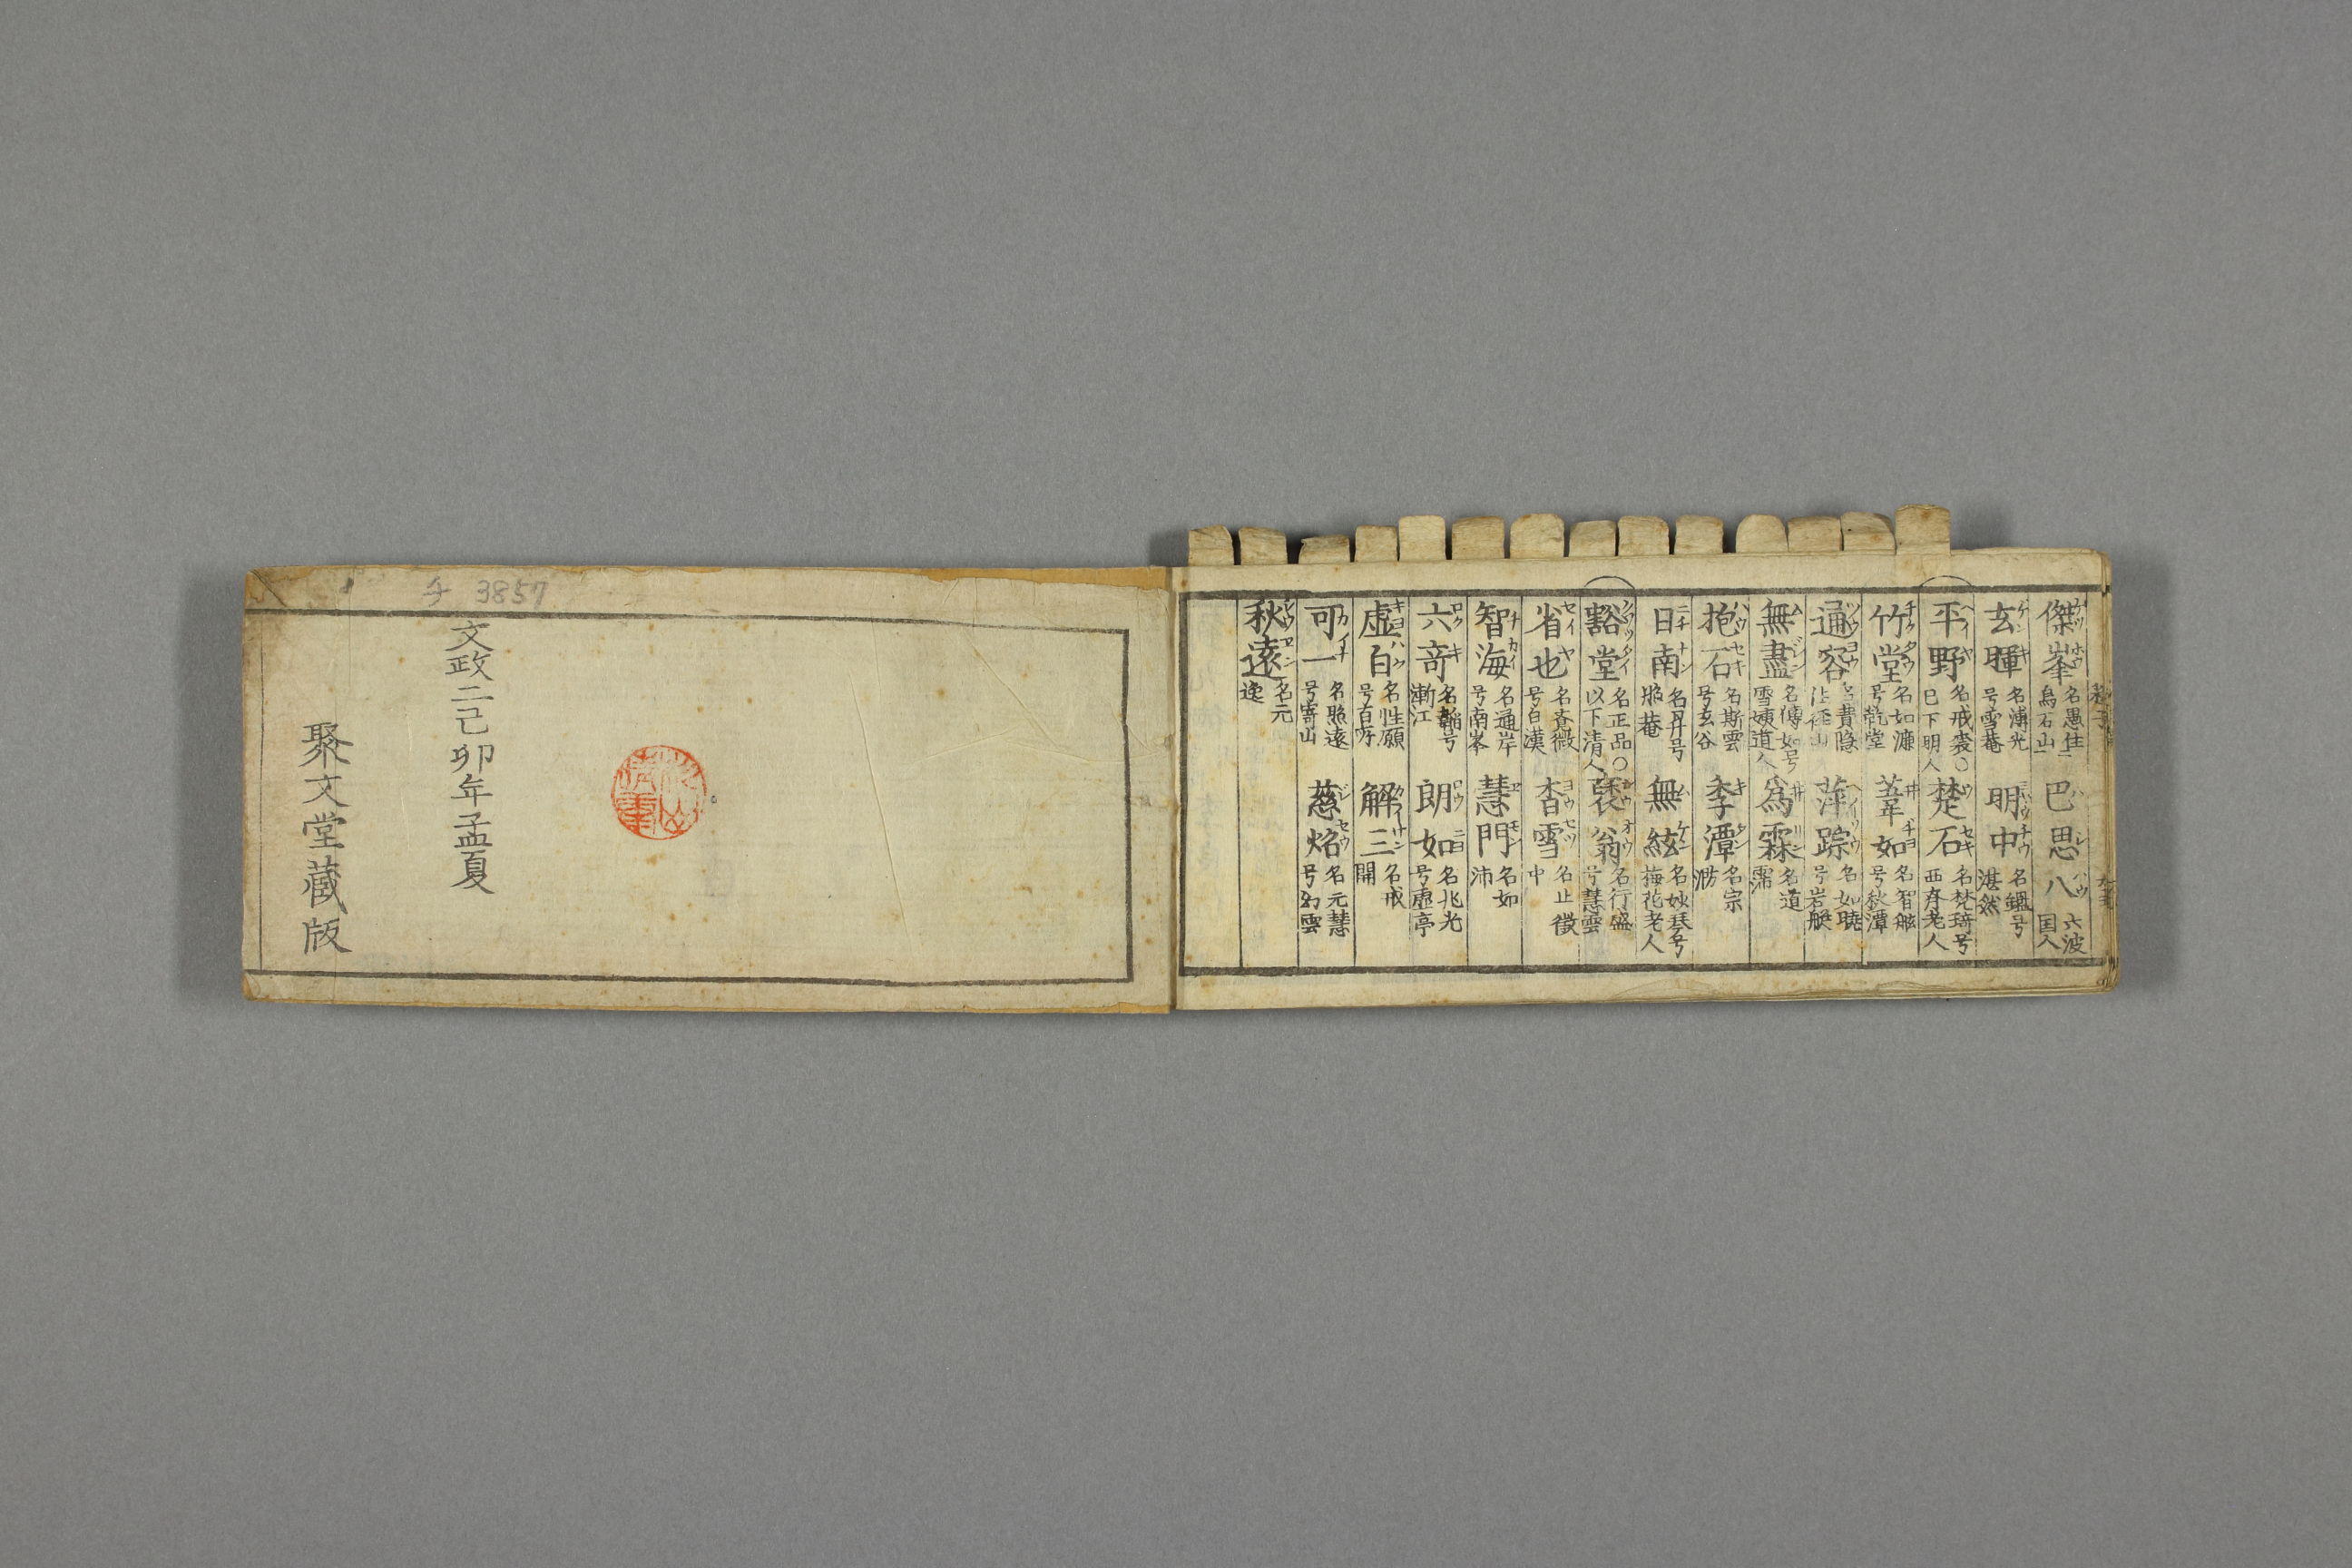 傑峯 名愚住 烏石山
巴思八 六波国人
玄暉 名溥光 号雪菴
明中 名鑑号湛然
平野 名戒裘〇 巳下明人
楚石 名梵琦号 西斉老人
竹堂 名如濂
名智舷 号秋潭
通容 名費隐
萍踪 名如暁 号岩艇
無盡 名傳如号 雪姨道人
為霖 名道霈
抱石 名斯雲 号玄谷
季潭 名宗泐
日南 名丹号 照菴
無絃 名妙琴号 梅花老人
豁堂 名正品〇 以下清人
翁 名行盛 号慧雲
省也 号白漢
杳雪 名止徴 中
智海 名通岸 号南峯
慧門 名如沛
六竒 漸江
朗如 名兆光 号虚亭
虚白 名性願
解三 名戒開
可一 名照遠 号寄山
慈焰 名元慧 号幻雲
秋遠 名元逵
チ 3857
文政二己卯年孟夏
聚文堂蔵版